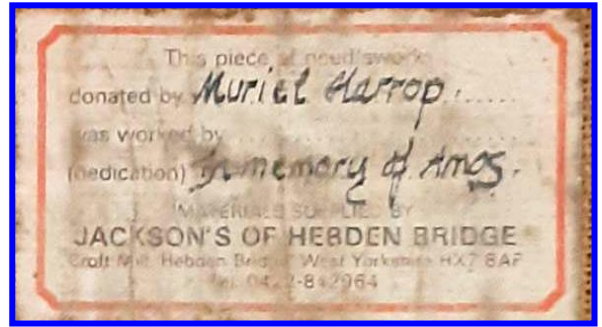 This piece of needlework
donated by Muriel Harrop.......
was worked by..................
(dedication) In memory of Amos.
MATERIALS SUPPLIED BY
JACKSON'S OF HEBDEN BRIDGE
Croft Mill, Hebden Bridge West Yorkshire HX7 8AP
Tel.